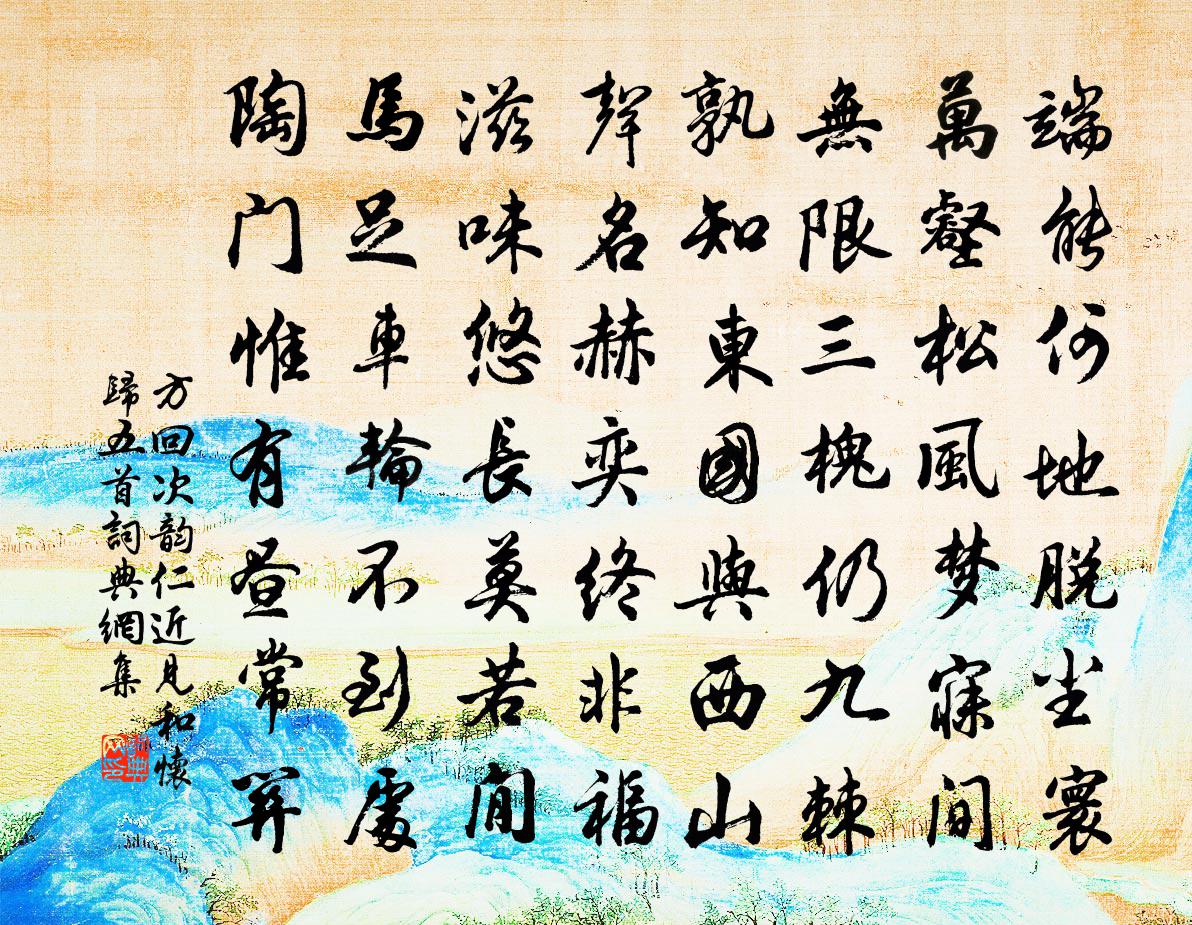 端能何地脱尘寰
萬壑松風梦寐间
無限三槐仍九棘
孰知東國與西山
聲名赫奕終非福
滋味悠長莫若閒
馬足車輪不到處
陶门惟有昼常關
方回次韵仁近見和懷
歸五首詞典網集